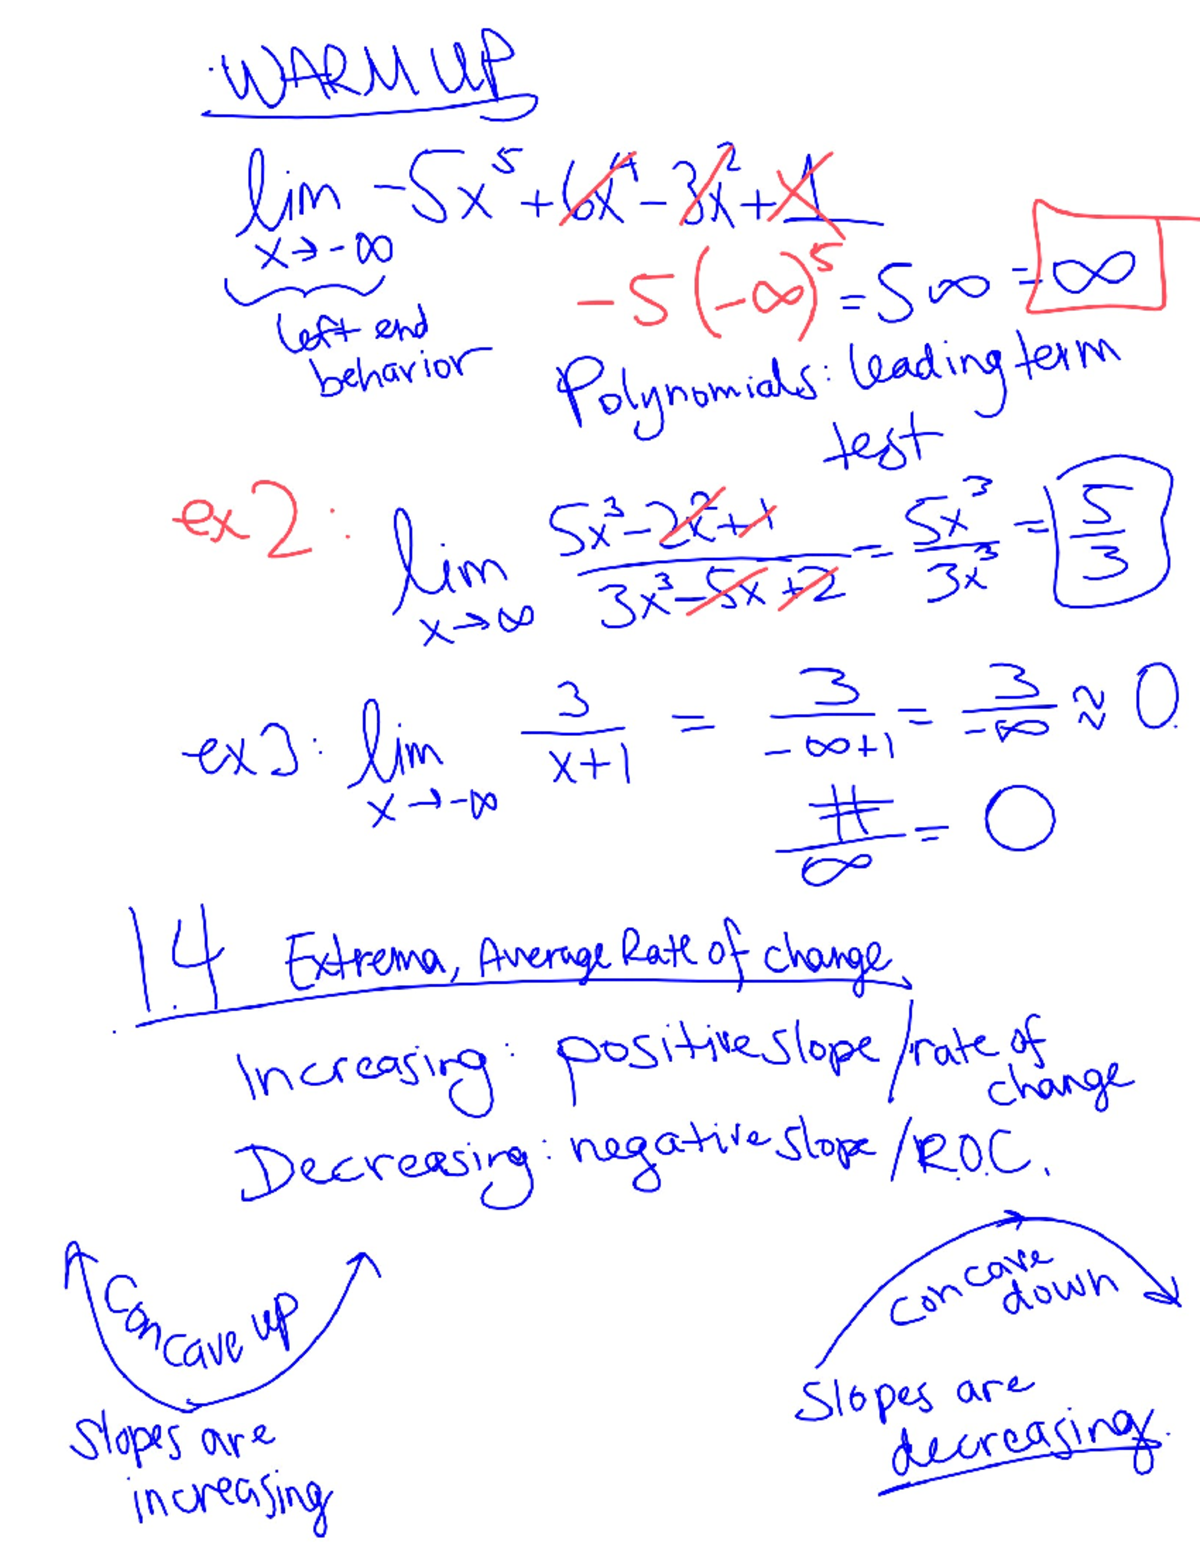 WARM UP
lim x→-∞ -5x⁵ + 6x⁴ - 3x² + 1
-5(-∞)⁵ = 5∞ = ∞
left end
behavior
Polynomials: leading term
test
ex2: lim x→∞ (5x³ - 2x² + 1)/(3x³ - 5x + 2) = 5x³/3x³ = 5/3
ex3: lim x→-∞ 3/(x+1) = 3/(-∞+1) = 3/-∞ ≈ 0
#/∞ = 0
1.4 Extrema, Average Rate of change
Increasing: positive slope/rate of
change
Decreasing: negative slope/R.O.C.
Concave up
Slopes are
increasing
concave
down
Slopes are
decreasing.